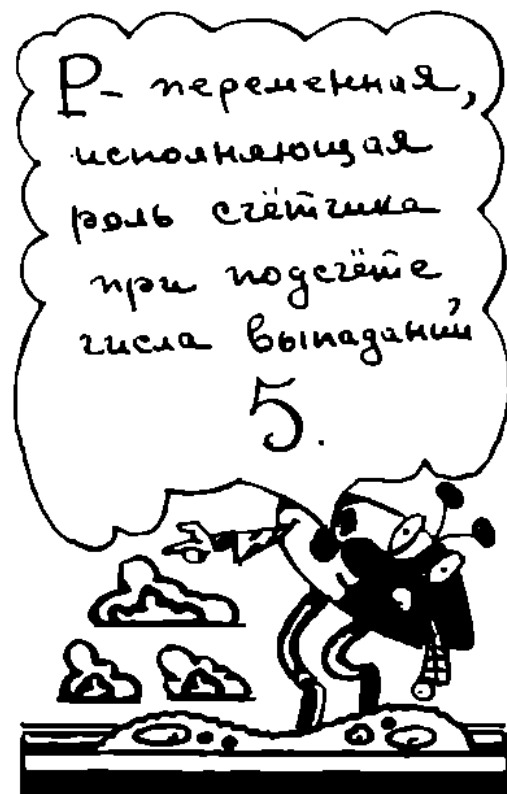 P- переменная,
исполняющая
роль счётчика
при подсчёте
числа выпаданий
5.